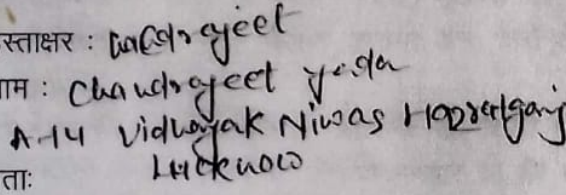 स्ताक्षर : Chandrajeet
ाम : Chandrajeet Yada
A-14 Vidhayak Niwas Hazratganj
ताः Lucknow